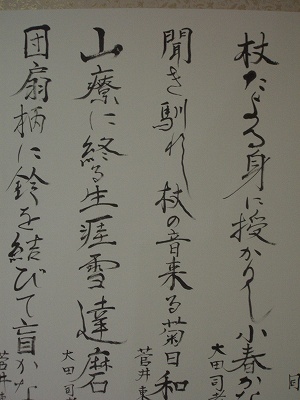 同
杖たよる身に授かりし小春かな
大田司
聞き馴れし杖の音来る菊日和
菅井東
山療に終る生涯雪達磨
大田司
団扇柄に鈴を結びて盲かな
菅井